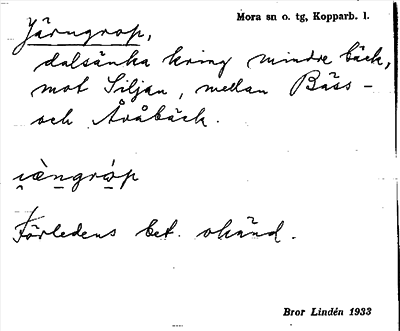 Mora sn o. tg, Kopparb. l.
Järngrop,
dalsänka kring mindre bäck,
mot Siljan, mellan Bäss-
och Åråbäck.
i̯æ̀ngróp
Förledens bet. okänd.
Bror Lindén 1933